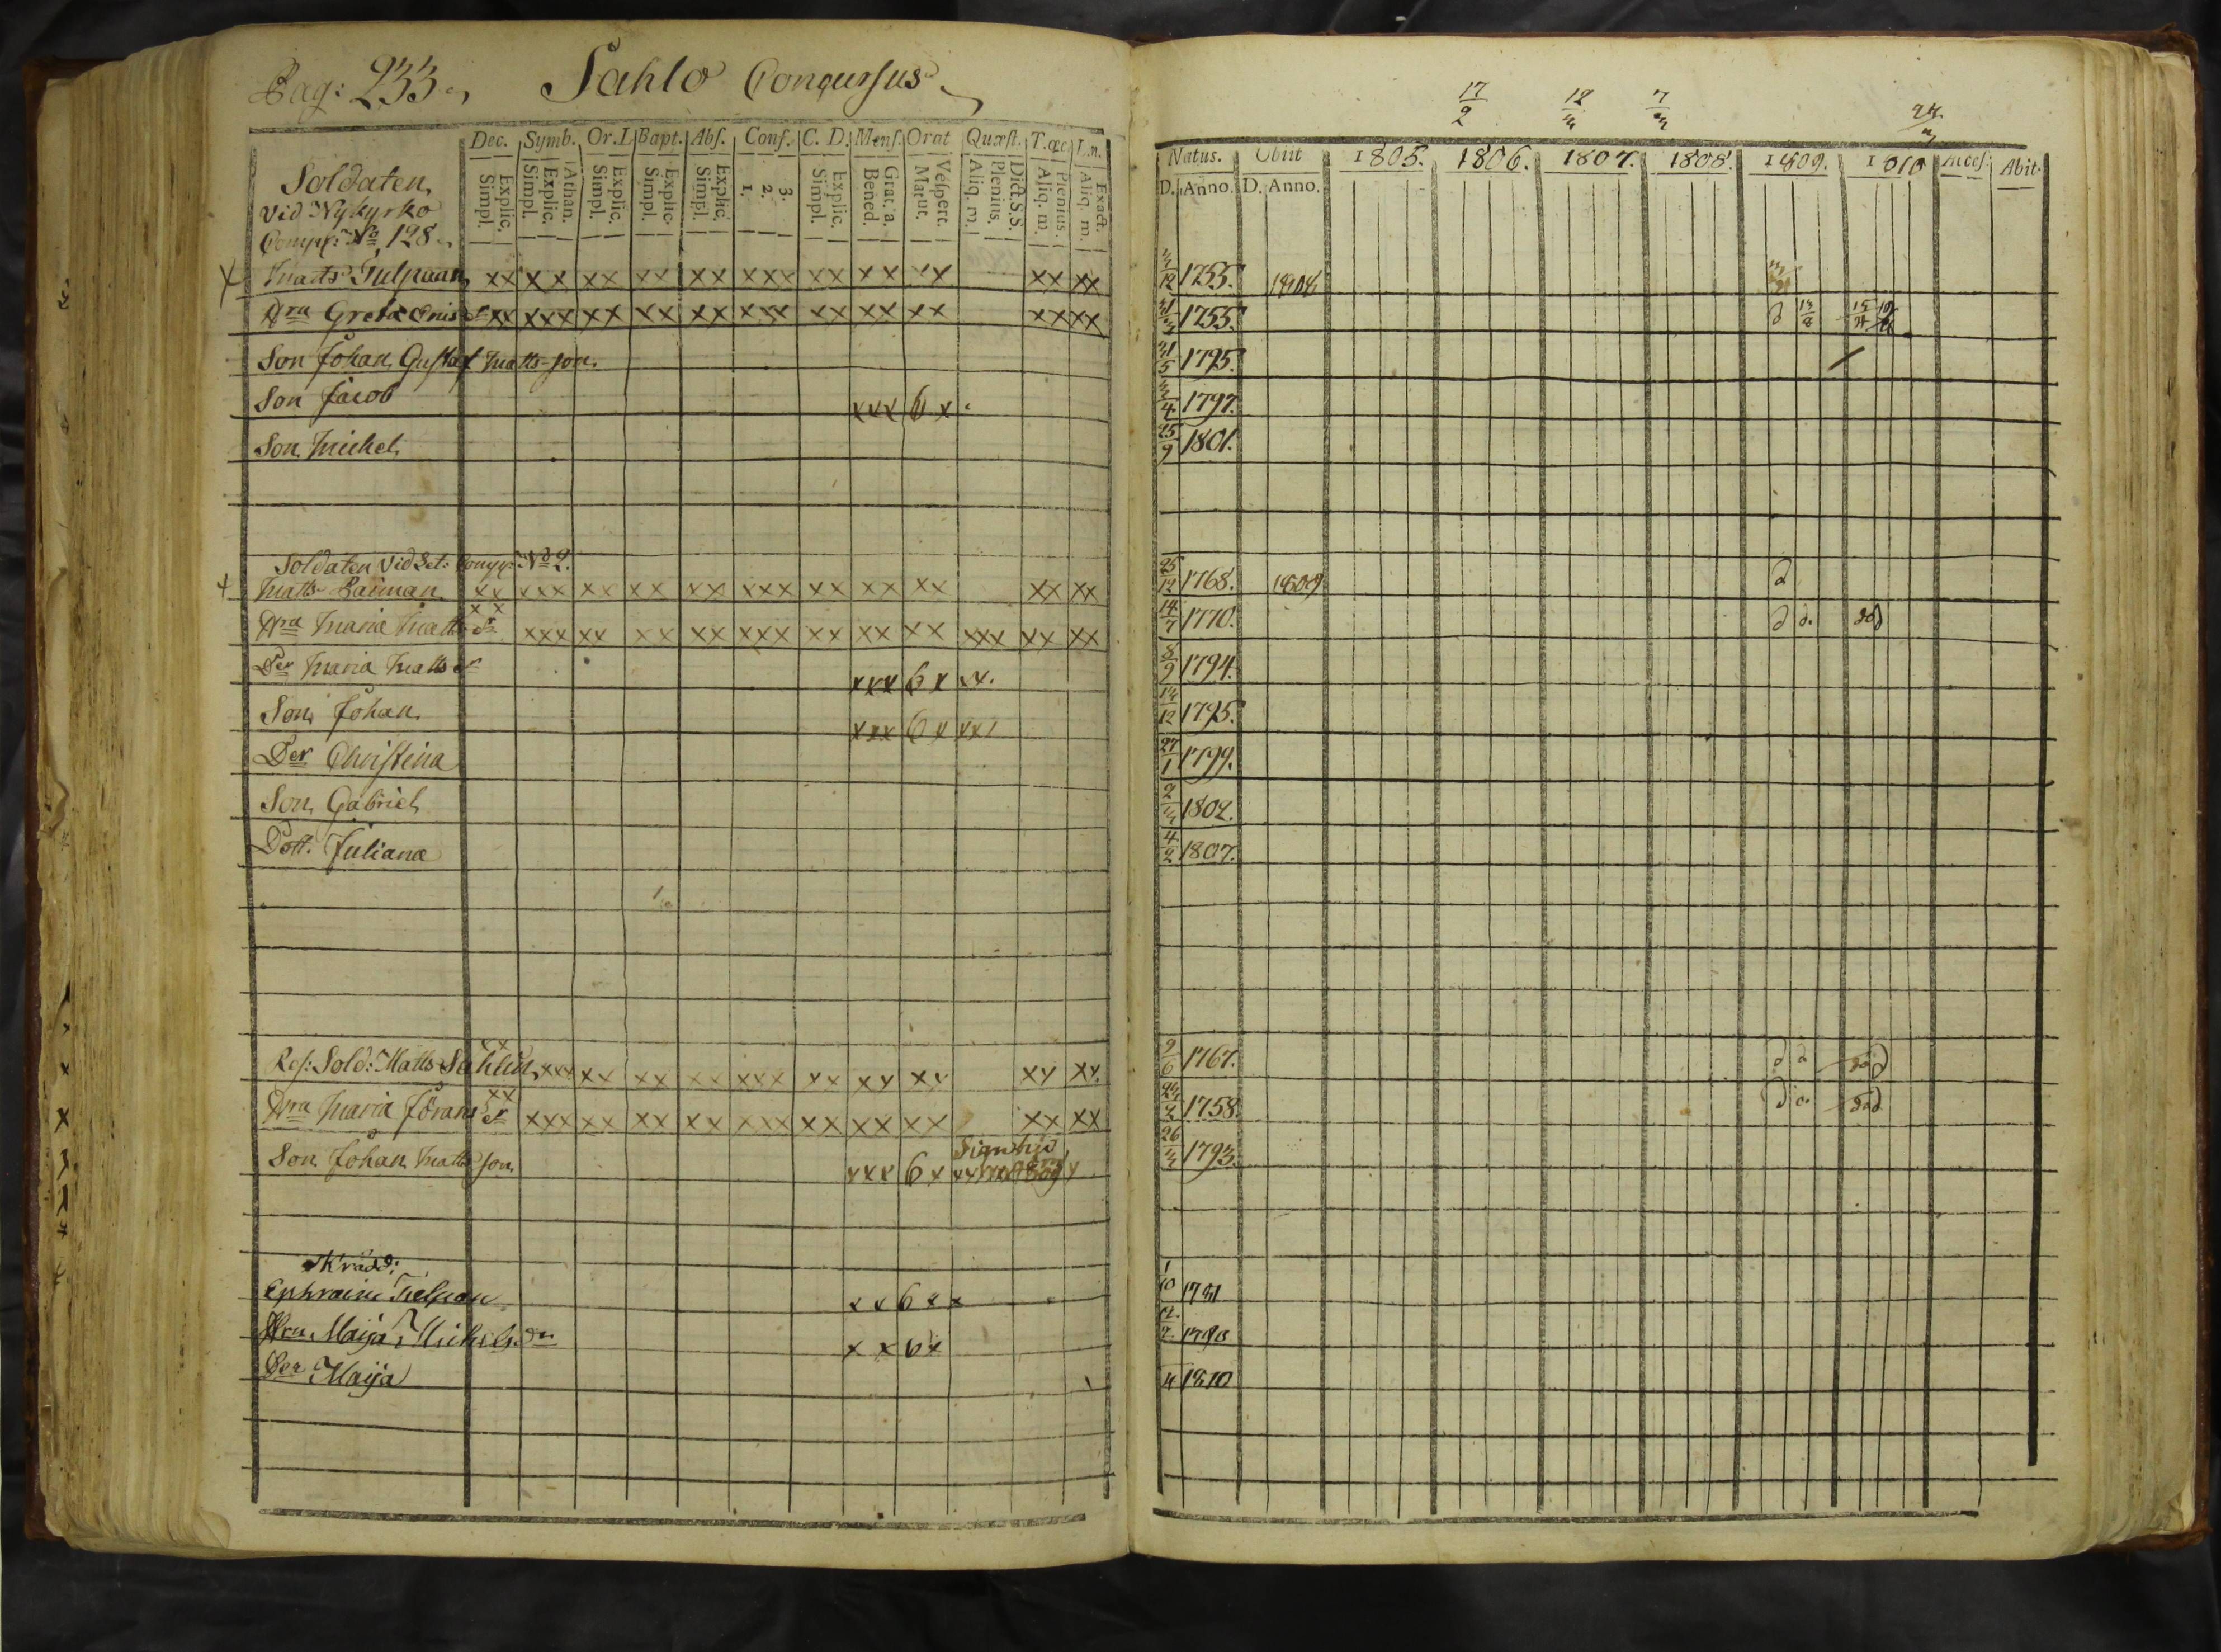 Pag: 233. Sahlo Concursus
Dec. Symb. Or.D Bapt. Abs. Conf. C. D. Mens. Orat Quæst. T.œc T.n.
Explic. Simpl. Athan. Explic. Simpl. Explic. Simpl. Explic. Simpl. Explic. Simpl. 3. 2. 1. Explic. Simpl. Grat. a. Bened. Vespert. Matut. Dict.S.S. Plenius. Aliq. m. Plenius. Aliq. m. Exact. Aliq. m.
Soldaten
vid Nykyrko
Comp: No 128
Matts Tulpaan xx xx xx xx xx xxx xx xx xx xx xx
Hra Greta xx xxx xx xx xx xxx xx xx xx xx xx
Son Johan Gustaf Matts-son.
Son Jacob xxx 6 x
Son Michel
Soldaten vid Comp: No 2.
Matts xx xxx xx xx xx xxx xx xx xx xx xx
Hra Maria Matts dr xx xxx xx xx xx xxx xx xx xx xxx xx xx
Der Maria Matts dr xxx 6 x xx.
Son Johan xxx 6 x xx
Der Christina
Son Gabriel
Dott. Juliana
Res: Sold: Matts Sahlin xx xxx xx xx xx xxx xx xx xx xx xx
Hra Maria Jörans dr xx xxx xx xx xx xxx xx xx xx xx xx
Son Johan Matts son xxx 6 x xx
Skrädd:
Ephraim Tulpan xx 6 x x x
Hru Maija Michelsdr x x 6 x
Der Maija
17/2 12/3 7/3 24/3
Natus. Obiit 1805. 1806. 1807. 1808. 1809. 1810 Acces. Abit.
D. Anno. D. Anno.
3/12 1755. 1808
21/3 1755.
21/5 1795.
3/4 1797.
25/9 1801.
25/12 1768. 1809
14/7 1770.
8/9 1794.
13/12 1795.
27/1 1799.
2/3 1802.
4/2 1807.
9/6 1767.
1758.
26/3 1793.
1/10 1781
4 1810